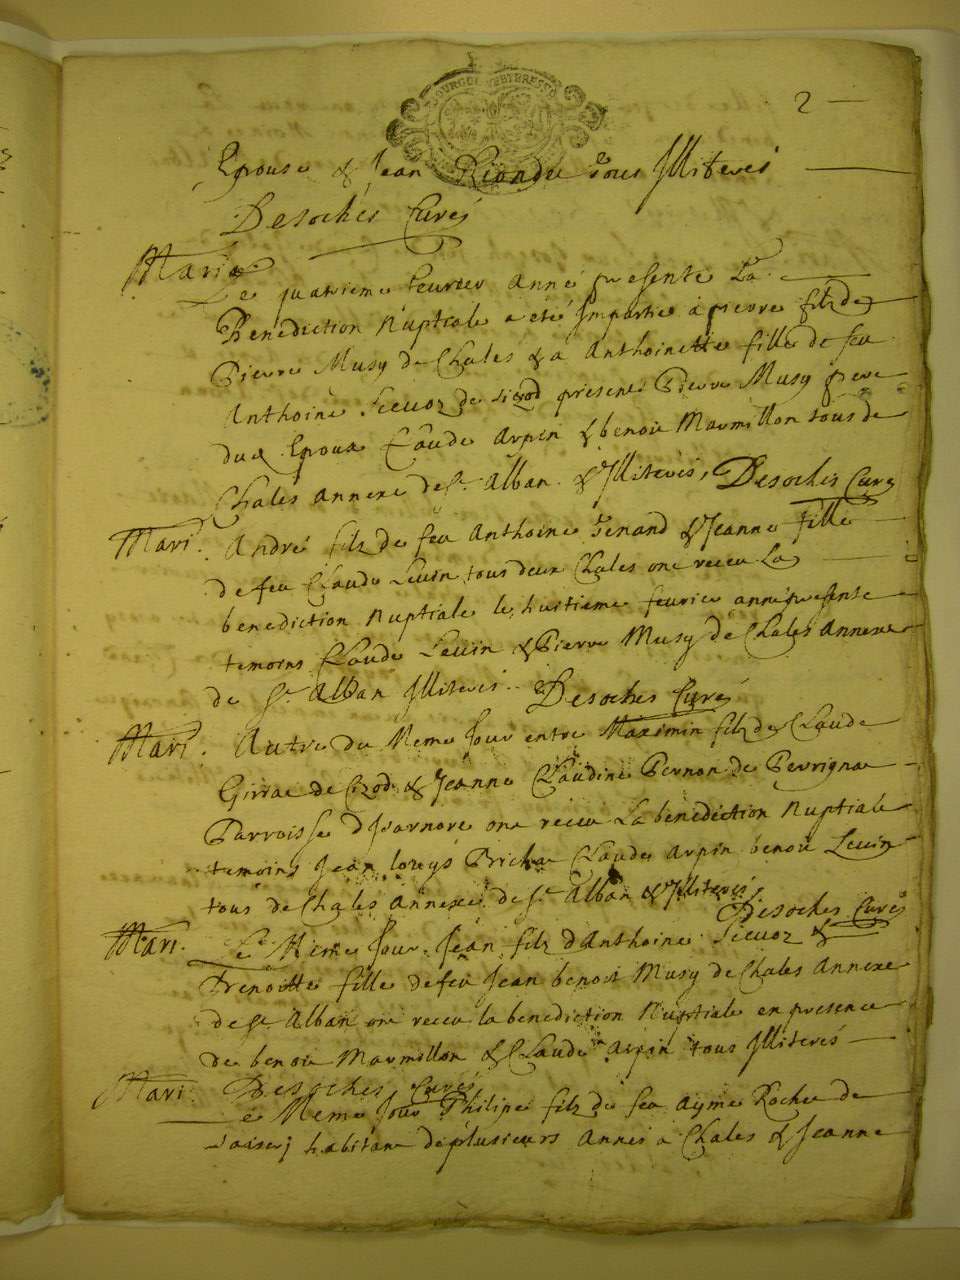 2
BOURGOG ET BRESSE
Epouse & Jean Riondu tous Jlliterés
Desoches Curé
Maria
Le quatrieme feurier Anné presente La
Benediction Nuptiale a été Jmpartie à pierre filz de
Pierre Musy de Chales & a Anthoinette fille de feu
Anthoine Sevoz de presens Pierre Musy pere
dud Epoux Claude Arpin & benoit Marmillon tous de
Chales annexe de St Alban & Jlliterés, Desoches Curé
Mari. André filz de feu Anthoine Tenand & Jeanne fille
de feu Claude Levin tous deux Chales ont receu La
benediction Nuptiale le huitieme feurier anné presente
temoins Claude Levin & Pierre Musy de Chales Annexe
de St Alban Jlliterés Desoches Curé
Mari. Autre du Meme Jour entre Maximin filz de Claude
Girrae de Cizod & Jeanne Claudine Pernon de Pevrignae
Parroisse d'Jsarnore ont receu La benediction Nuptiale
temoins Jean louys Brichat Claude Arpin benoit Levin
tous de Chales Annexe de St Alban & Jlliterés
Desoches Curé
Mari. Le Meme Jour Jean filz d'Anthoine Sevoz &
Benoitte fille de feu Jean benoit Musy de Chales Annexe
de St Alban ont receu la benediction Nuptiale en presence
de benoit Marmillon & Claude Arpin tous Jlliterés
Desoches Curé
Mari. Le Meme Jour Philipe filz de feu Ayme Rochet de
habitant deplusieurs Annés a Chales & Jeanne